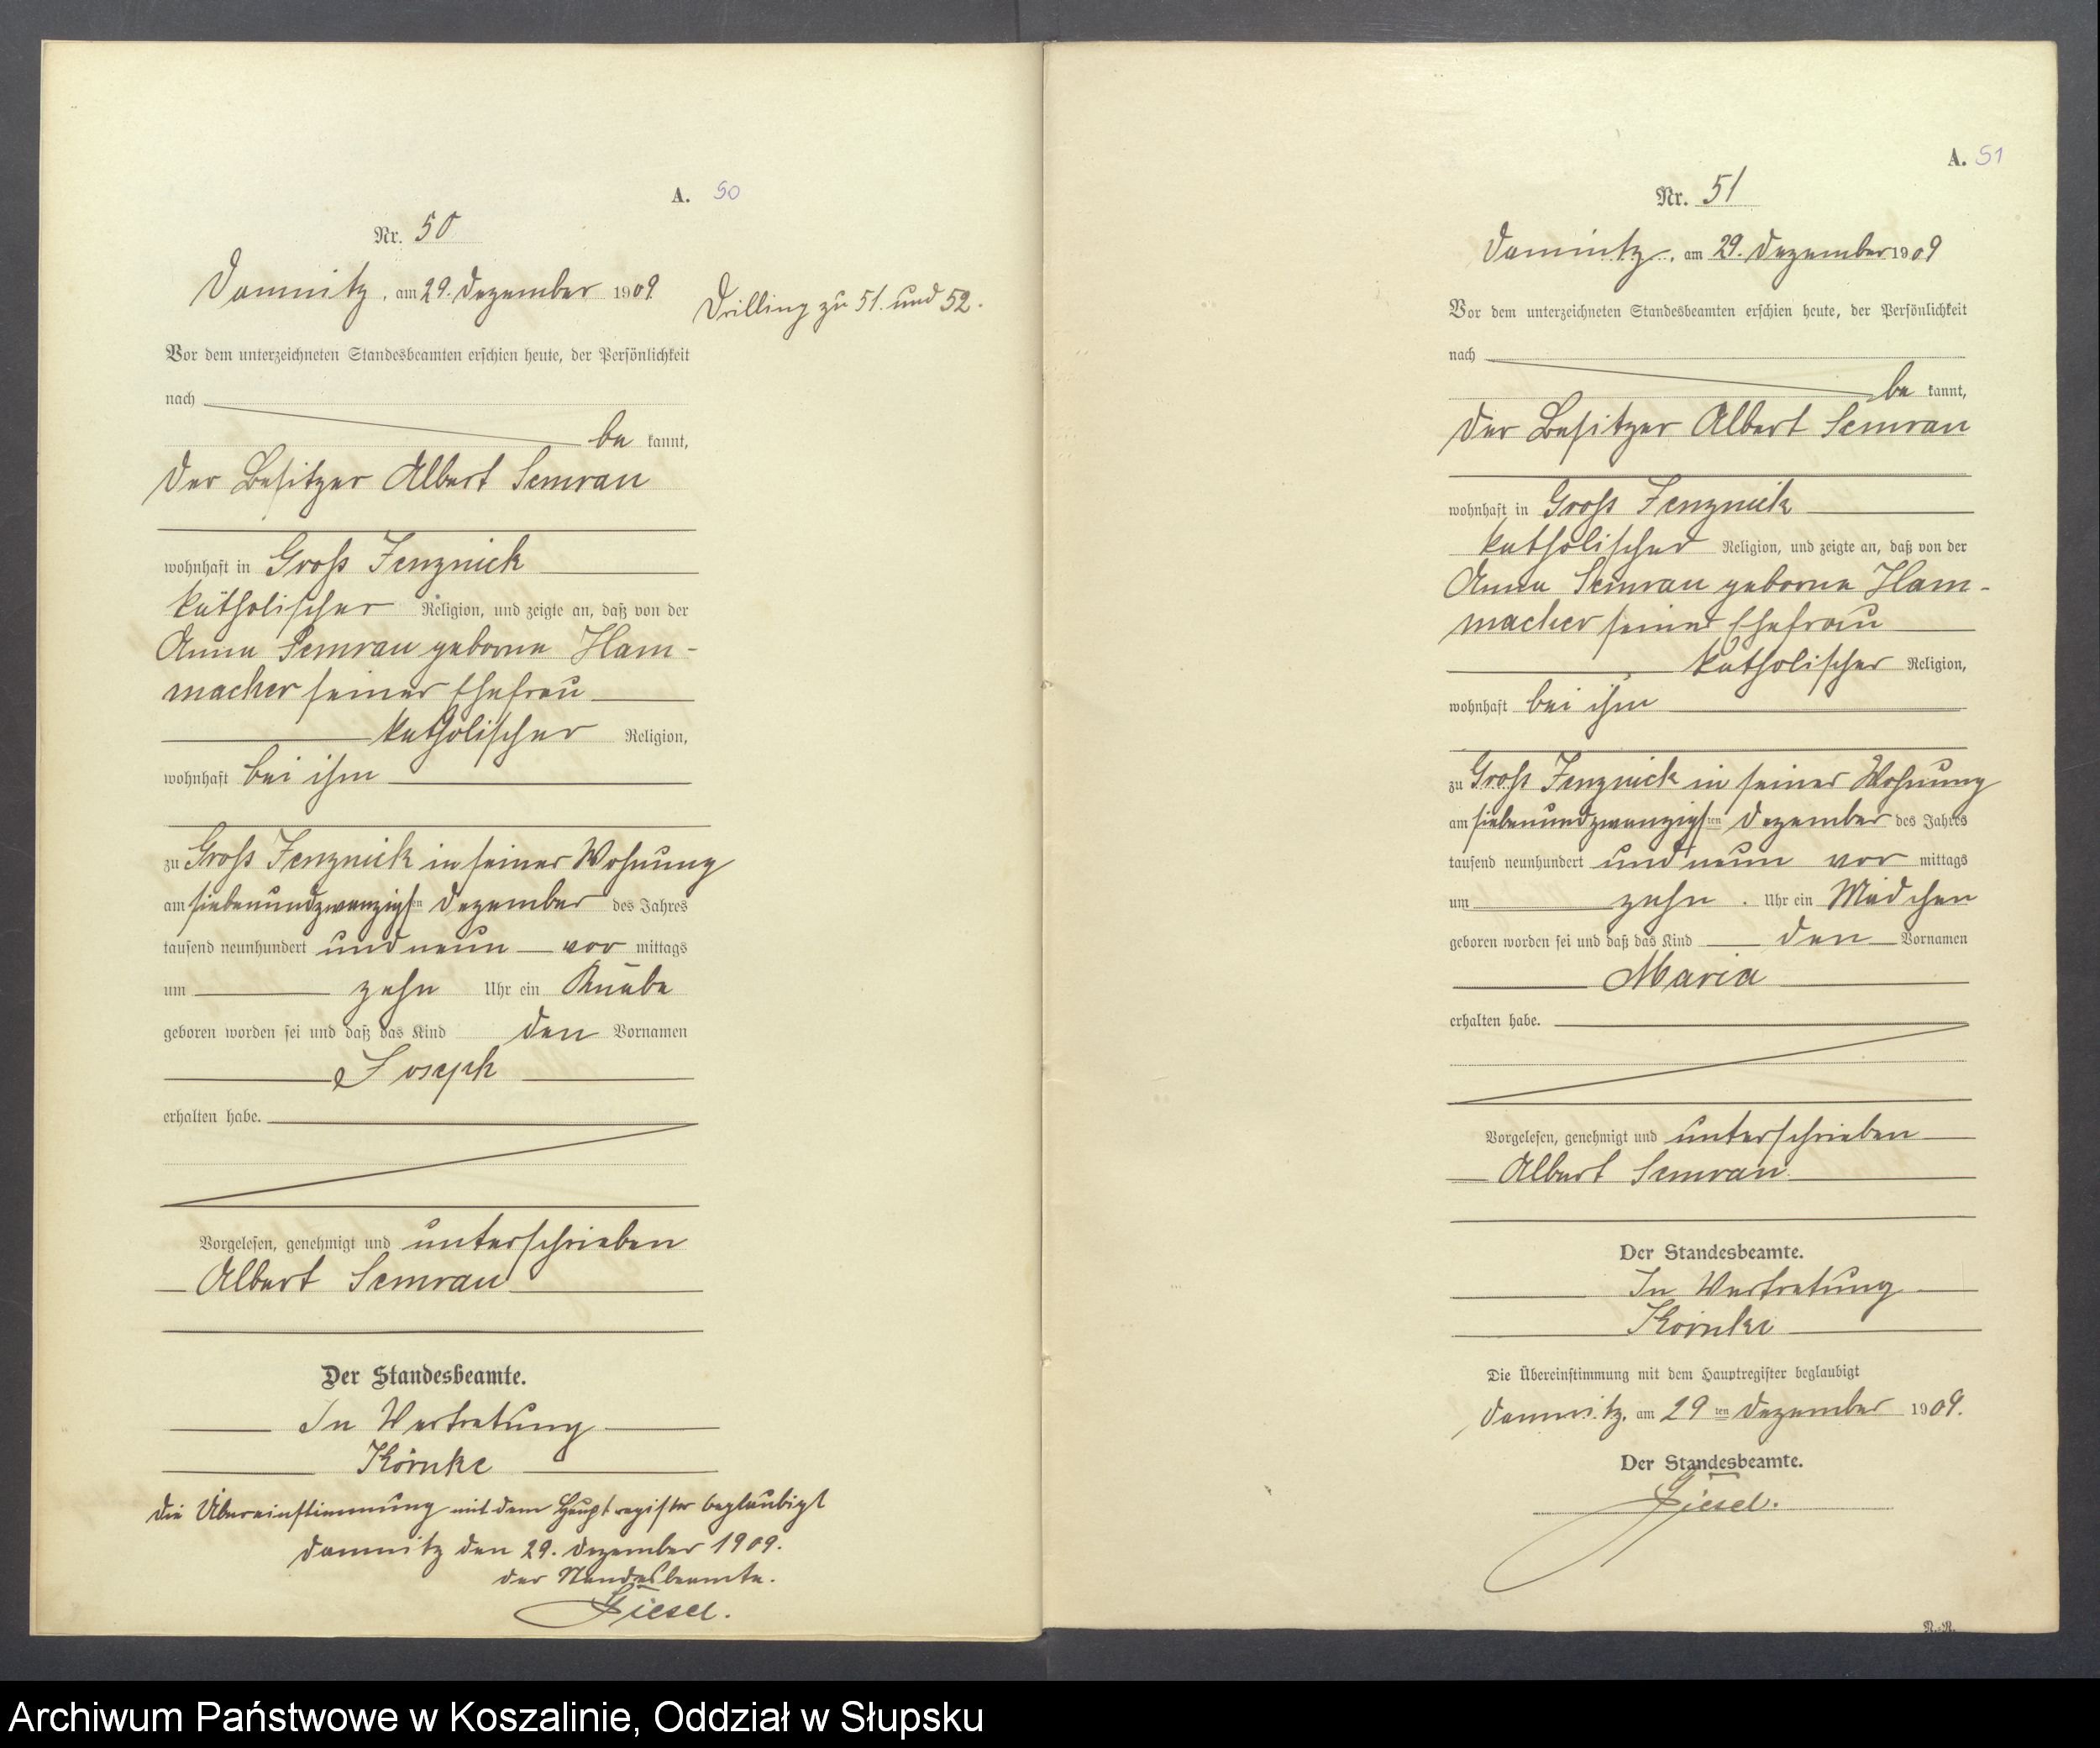 A. 50
Nr. 50
Damnitz, am 29. Dezember 1909
Drilling zu 51. und 52.
Vor dem unterzeichneten Standesbeamten erschien heute, der Persönlichkeit
nach
be kannt,
der Besitzer Albert Semrau
wohnhaft in Groß Jenznick
katholischer Religion, und zeigte an, daß von der
Anna Semrau geborne Ham-
macher seiner Ehefrau
katholischer Religion,
wohnhaft bei ihm
zu Groß Jenznick in seiner Wohnung
am siebenundzwanzigsten Dezember des Jahres
tausend neunhundert und neun vor mittags
um zehn Uhr ein Knabe
geboren worden sei und daß das Kind den Vornamen
Joseph
erhalten habe.
Vorgelesen, genehmigt und unterschrieben
Albert Semrau
Der Standesbeamte.
In Vertretung
Körnke
Die Übereinstimmung mit dem Hauptregister beglaubigt
Damnitz den 29. Dezember 1909.
Der Standesbeamte.
Giesel.
A. 51
Nr. 51
Damnitz, am 29. Dezember 1909
Vor dem unterzeichneten Standesbeamten erschien heute, der Persönlichkeit
nach
be kannt,
der Besitzer Albert Semrau
wohnhaft in Groß Jenznick
katholischer Religion, und zeigte an, daß von der
Anna Semrau geborne Ham-
macher seiner Ehefrau
katholischer Religion,
wohnhaft bei ihm
zu Groß Jenznick in seiner Wohnung
am siebenundzwanzigsten Dezember des Jahres
tausend neunhundert und neun vor mittags
um zehn Uhr ein Mädchen
geboren worden sei und daß das Kind den Vornamen
Maria
erhalten habe.
Vorgelesen, genehmigt und unterschrieben
Albert Semrau
Der Standesbeamte.
In Vertretung
Körnke
Die Übereinstimmung mit dem Hauptregister beglaubigt
Damnitz, am 29 ten Dezember 1909.
Der Standesbeamte.
Giesel.
Archiwum Państwowe w Koszalinie, Oddział w Słupsku